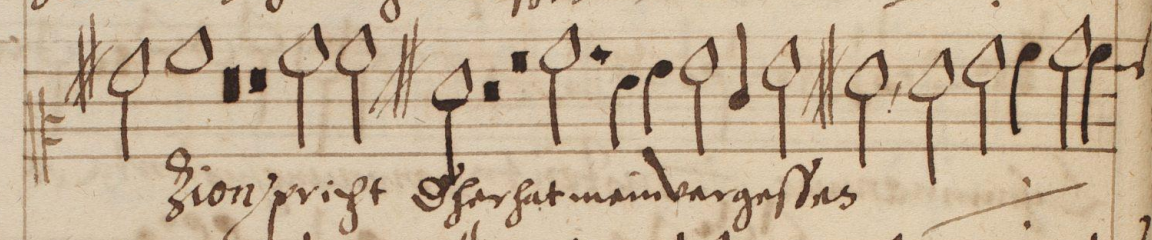 Zion spricht der her hat mein vergessen